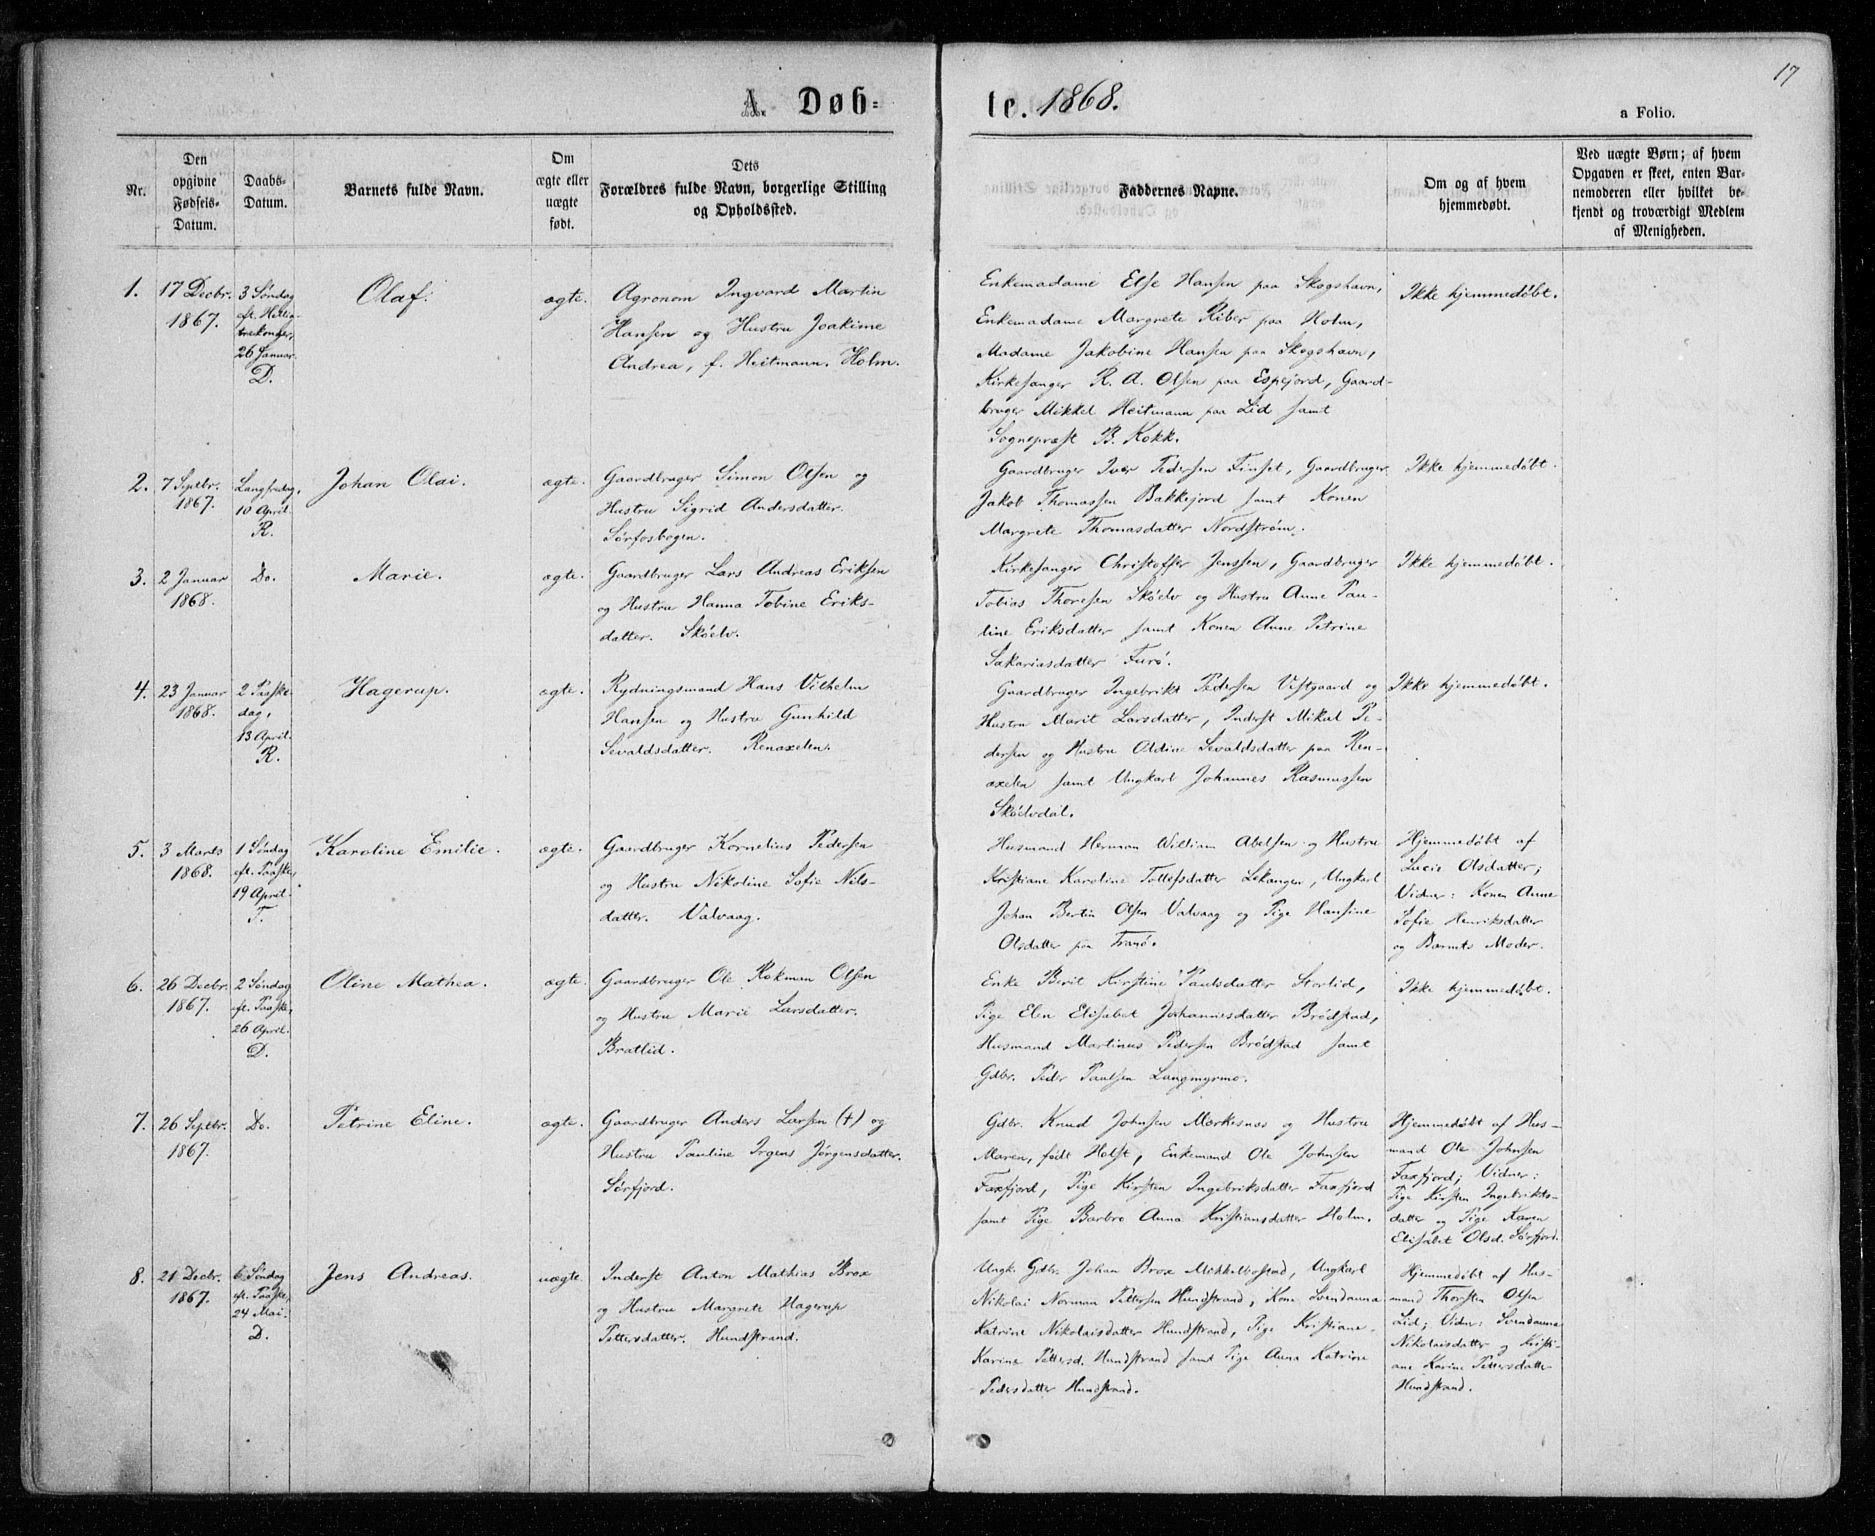 17
A. Døb-
te. 1868.
a Folio.
Nr.
Den
opgivne
Fødsels-
Datum.
Daabs-
Datum.
Barnets fulde Navn.
Om
ægte eller
uægte
født.
Dets
Forældres fulde Navn, borgerlige Stilling
og Opholdssted.
Faddernes Navne.
Om og af hvem
hjemmedøbt.
Ved uægte Børn; af hvem
Opgaven er skeet, enten Bar-
nemoderen eller hvilket be-
kjendt og troværdigt Medlem
af Menigheden.
1.
17 Decbr.
1867.
3 Søndag
eft. Hellig
trekonger,
26 Januar.
D.
Olaf.
ægte.
Agronom Ingvard Martin
Hansen og Hustru Joakime
Andrea, f. Heitmann. Holm.
Enkemadame Else Hansen paa Skogshavn,
Enkemadame Margrete Kiber paa Holm,
Madame Jakobine Hansen paa Skogshavn,
Kirkesanger R. A. Olsen paa Espejord, Gaard-
bruger Mikkel Heitmann paa Lid samt
Sognepræst B. Kokk.
Ikke hjemmedøbt.
2.
7 Septbr.
1867.
Langfredag,
10 April.
R.
Johan Olai.
ægte.
Gaardbruger Simon Olsen og
Hustru Sigrid Andersdatter.
Sørfosbogen.
Gaardbruger Iver Pedersen Finset, Gaardbruger
Jakob Thomassen Bakkejord samt Konen
Margrete Thomasdatter Nordstrøm.
Ikke hjemmedøbt.
3.
2 Januar
1868.
Do.
Marie.
ægte.
Gaardbruger Lars Andreas Eriksen
og Hustru Hanna Tobine Eriks-
datter. Skøelv.
Kirkesanger Christoffer Jenssen, Gaardbruger
Tobias Thoresen Skøelv og Hustru Anne Pau-
line Eriksdatter samt Konen Anne Petrine
Sakariasdatter Furø.
Ikke hjemmedøbt.
4.
23 Januar
1868.
2 Paaske-
dag,
13 April.
R.
Hagerup.
ægte.
Rydningsmand Hans Vilhelm
Hansen og Hustru Gunhild
Sevaldsdatter. Renaxelen.
Gaardbruger Ingebrikt Pedersen Vestgaard og
Hustru Marit Larsdatter, Inderst Mikal Pe-
dersen og Hustru Oldine Sevaldsdatter paa Ren-
axelen samt Ungkarl Johannes Rasmussen
Skøelvdal.
Ikke hjemmedøbt.
5.
3 Marts
1868.
1 Søndag
eft. Paaske,
19 April.
T.
Karoline Emilie.
ægte.
Gaardbruger Kornelius Pedersen
og Hustru Nikoline Sofie Nils-
datter. Valvaag.
Husmand Herman William Abelsen og Hustru
Kristiane Karoline Tollefsdatter Lekangen, Ungkarl
Johan Bertin Olsen Valvaag og Pige Hansine
Olsdatter paa Tranø.
Hjemmedøbt af
Lucie Olsdatter;
Vidner: Konen Anne
Sofie Henriksdatter
og Barnets Moder.
6.
26 Decbr.
1867.
2 Søndag
eft. Paaske,
26 April.
D.
Oline Mathea.
ægte.
Gaardbruger Ole Rokman Olsen
og Hustru Marie Larsdatter.
Bratlid.
Enke Berit Kirstine Paulsdatter Storlid,
Pige Elen Elisabet Johannesdatter Brødstad,
Husmand Martinus Pedersen Brødstad samt
Gdbr. Peder Paulsen Langmyrmo.
Ikke hjemmedøbt.
7.
26 Septbr.
1867.
Do.
Petrine Eline.
ægte.
Gaardbruger Anders Larsen (†) og
Hustru Pauline Irgens Jørgensdatter.
Sørfjord.
Gdbr. Knud Johnsen Mærkesnæs og Hustru
Maren, født Holst, Enkemand Ole Johnsen
Faxfjord, Pige Kirsten Ingebriksdatter Faxfjord
samt Pige Barbro Anna Kristiansdatter Holm.
Hjemmedøbt af Hus-
mand Ole Johnsen
Faxfjord; Vidner:
Pige Kirsten Ingebrikts-
datter og Pige Karen
Elisabet Olsd. Sørfjord.
8.
21 Decbr.
1867.
6 Søndag
eft. Paaske,
24 Mai.
D.
Jens Andreas.
uægte.
Inderst Anton Mathias Brox
og Hustru Margrete Hagerup
Pettersdatter. Hundstrand.
Ungk. Gdbr. Johan Brox Mikkelbostad, Ungkarl
Nikolai Norman Pettersen Hundstrand, Kone Svendanna
Katrine Nikolaisdatter Hundstrand, Pige Kristiane
Karine Pettersd. Hundstrand samt Pige Anna Katrine
Pedersdatter Hundstrand.
Hjemmedøbt af Hus-
mand Thorsten Olsen
Lid; Vidn: Svendanna
Nikolaisdatter og Kristi-
ane Karine Pettersdatter
Hundstrand.